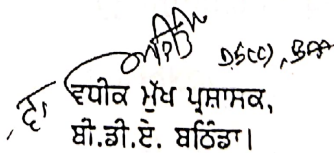 DS(C), 
ਵਧੀਕ ਮੁੱਖ ਪ੍ਰਸ਼ਾਸਕ,
ਬੀ.ਡੀ.ਏ. ਬਠਿੰਡਾ।